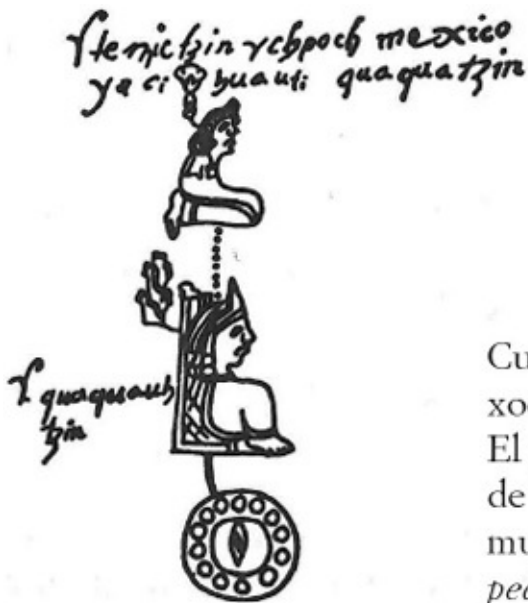 ytenictzin ychpoch mexico
ya cihuauti quaquatzin
y quaquauh
tzin
Cu
xo
El
de
mu
pe